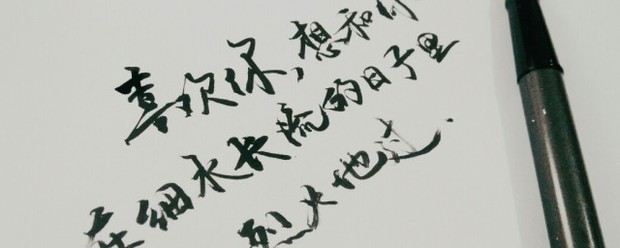 喜欢你，想和你
在细水长流的日子里
烈火地过.